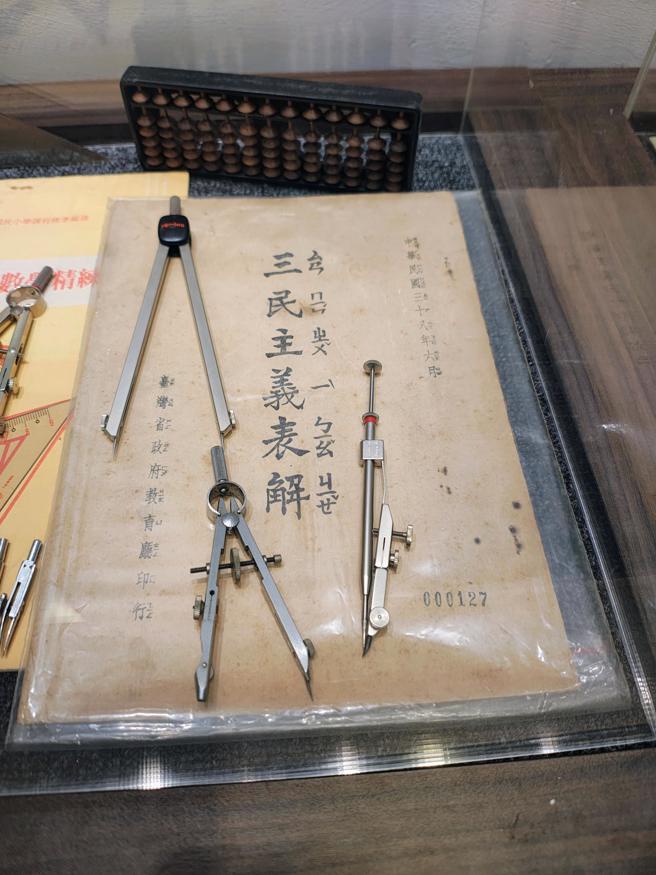 中華民國三十八年六月
三民主義表解
ㄙㄢ ㄇㄧㄣˊ ㄓㄨˇ ㄧˋ ㄅㄧㄠˇ ㄐㄧㄝˇ
臺灣省政府教育廳印行
000127
民小學課程標準編
數學精練